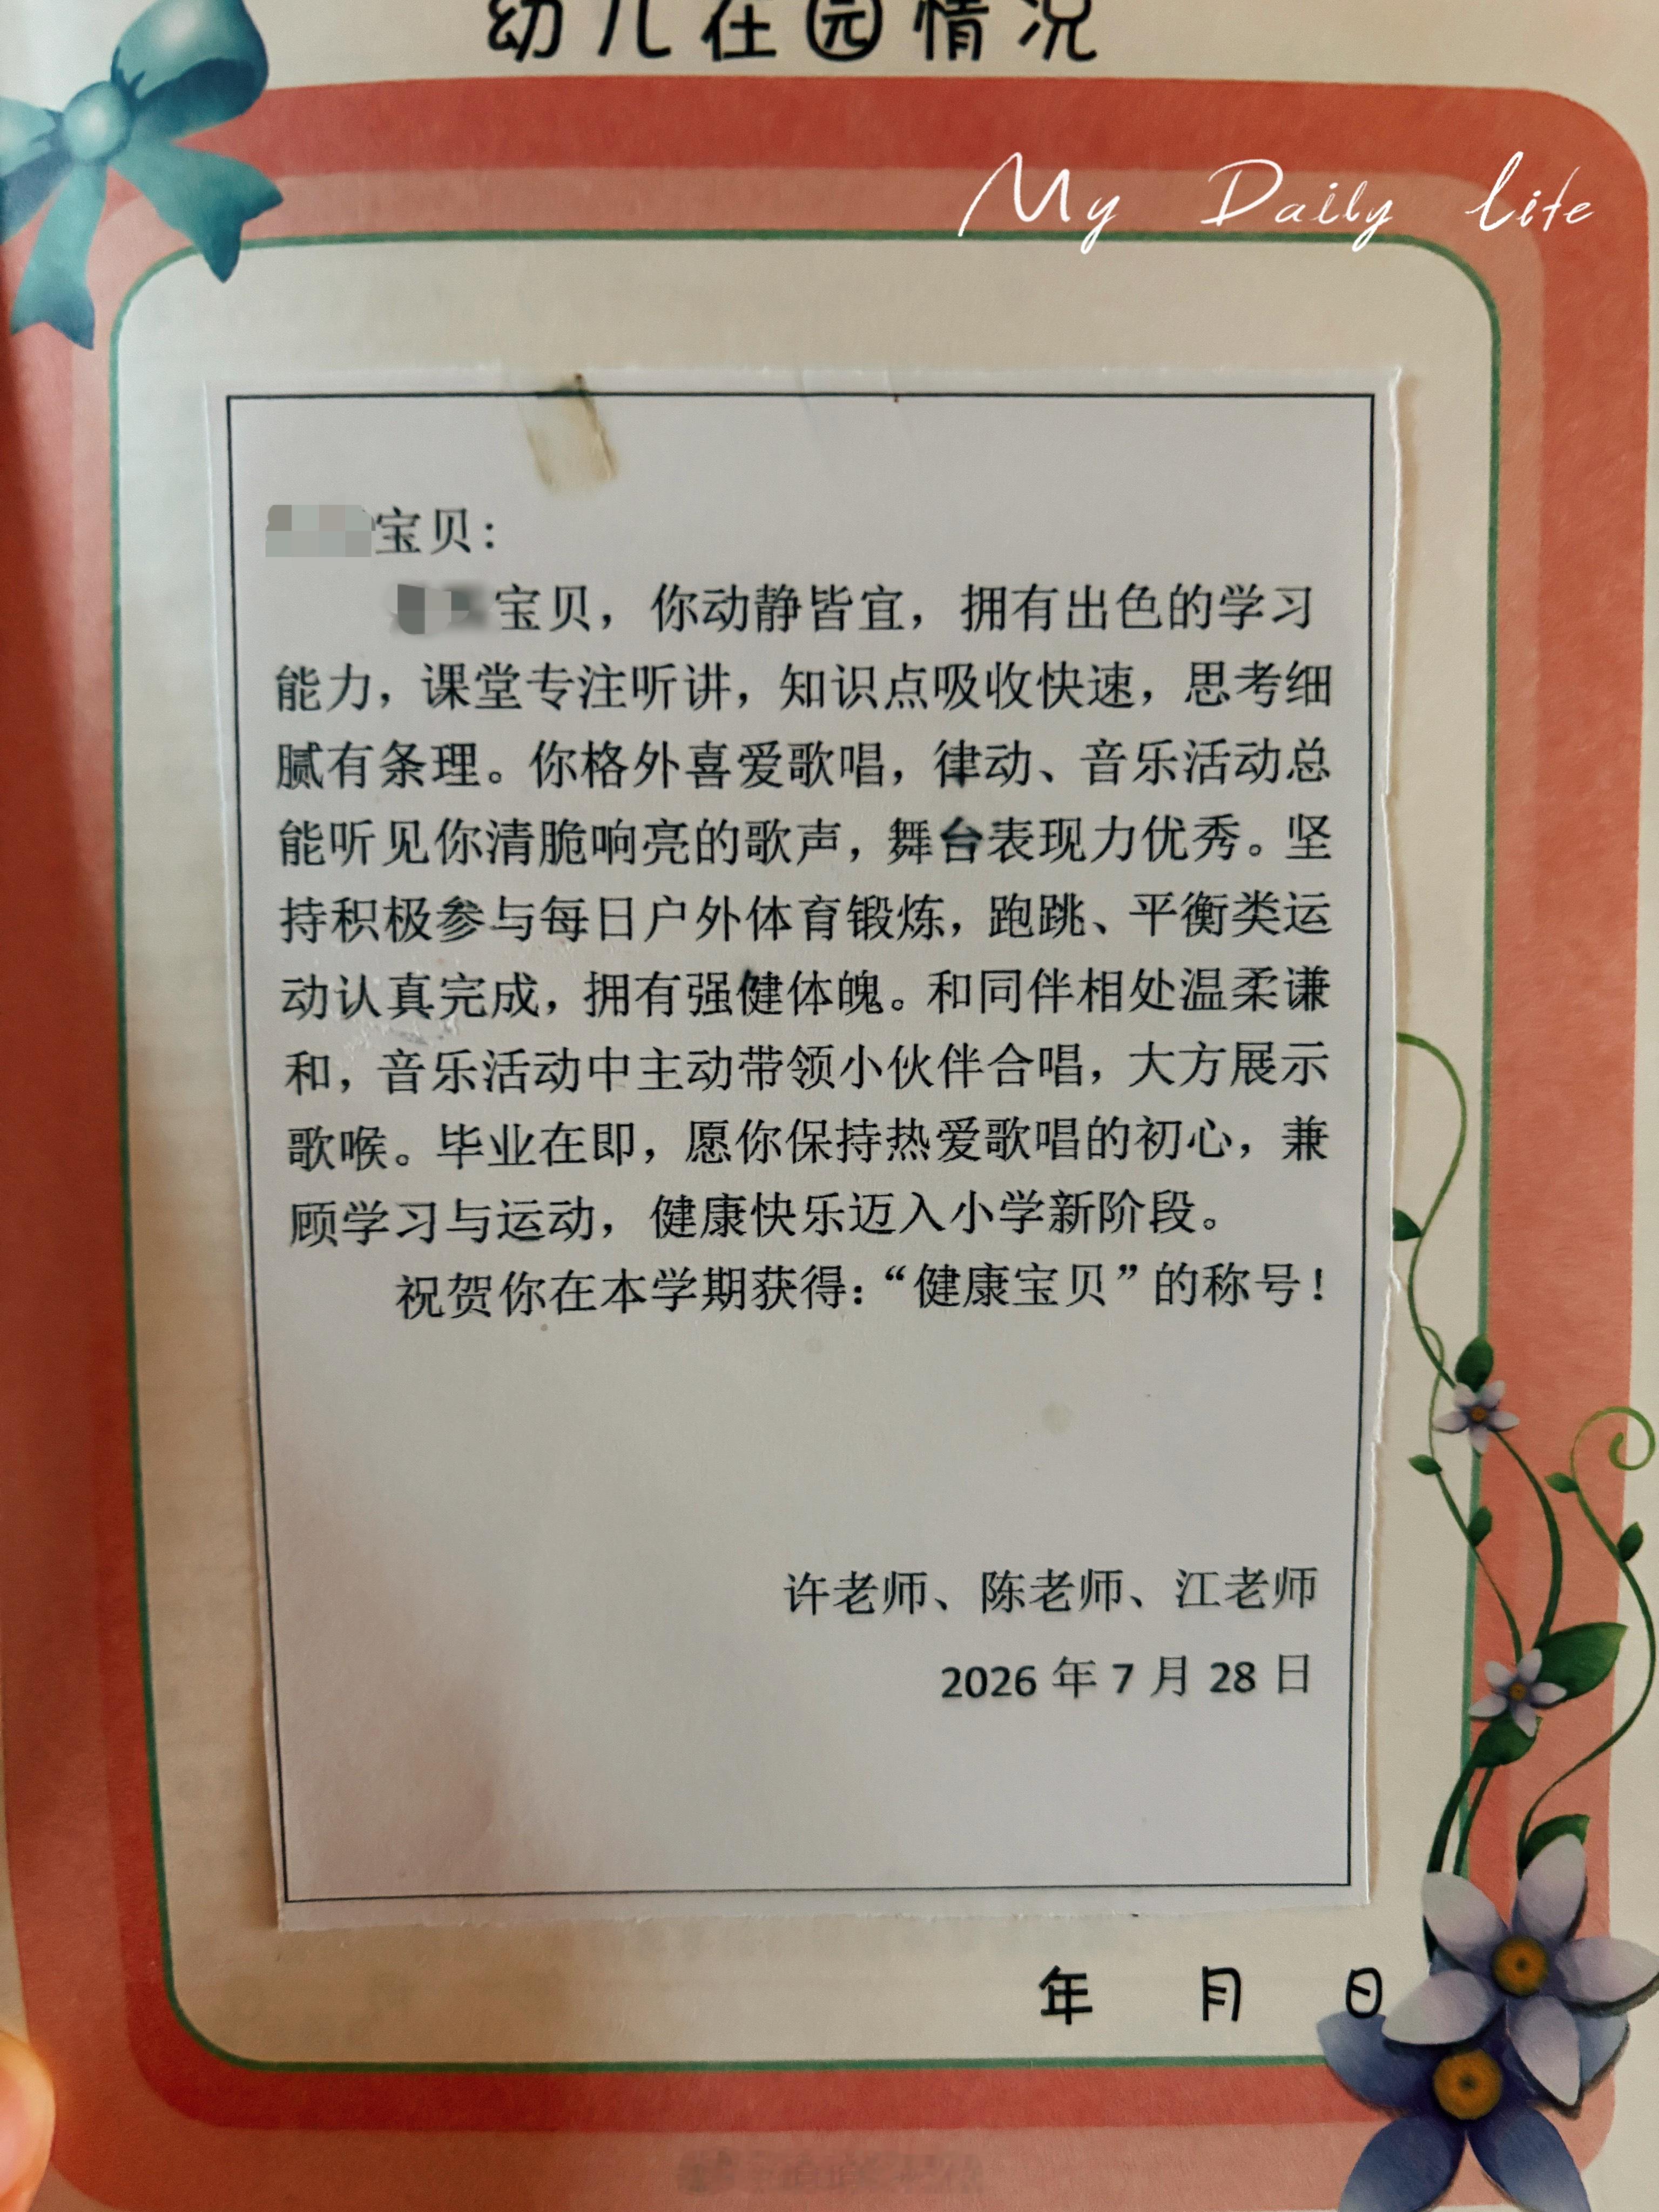 幼儿在园情况
My Daily life
宝贝：
宝贝，你动静皆宜，拥有出色的学习
能力，课堂专注听讲，知识点吸收快速，思考细
腻有条理。你格外喜爱歌唱，律动、音乐活动总
能听见你清脆响亮的歌声，舞台表现力优秀。坚
持积极参与每日户外体育锻炼，跑跳、平衡类运
动认真完成，拥有强健体魄。和同伴相处温柔谦
和，音乐活动中主动带领小伙伴合唱，大方展示
歌喉。毕业在即，愿你保持热爱歌唱的初心，兼
顾学习与运动，健康快乐迈入小学新阶段。
祝贺你在本学期获得：“健康宝贝”的称号！
许老师、陈老师、江老师
2026 年 7 月 28 日
年 月 日